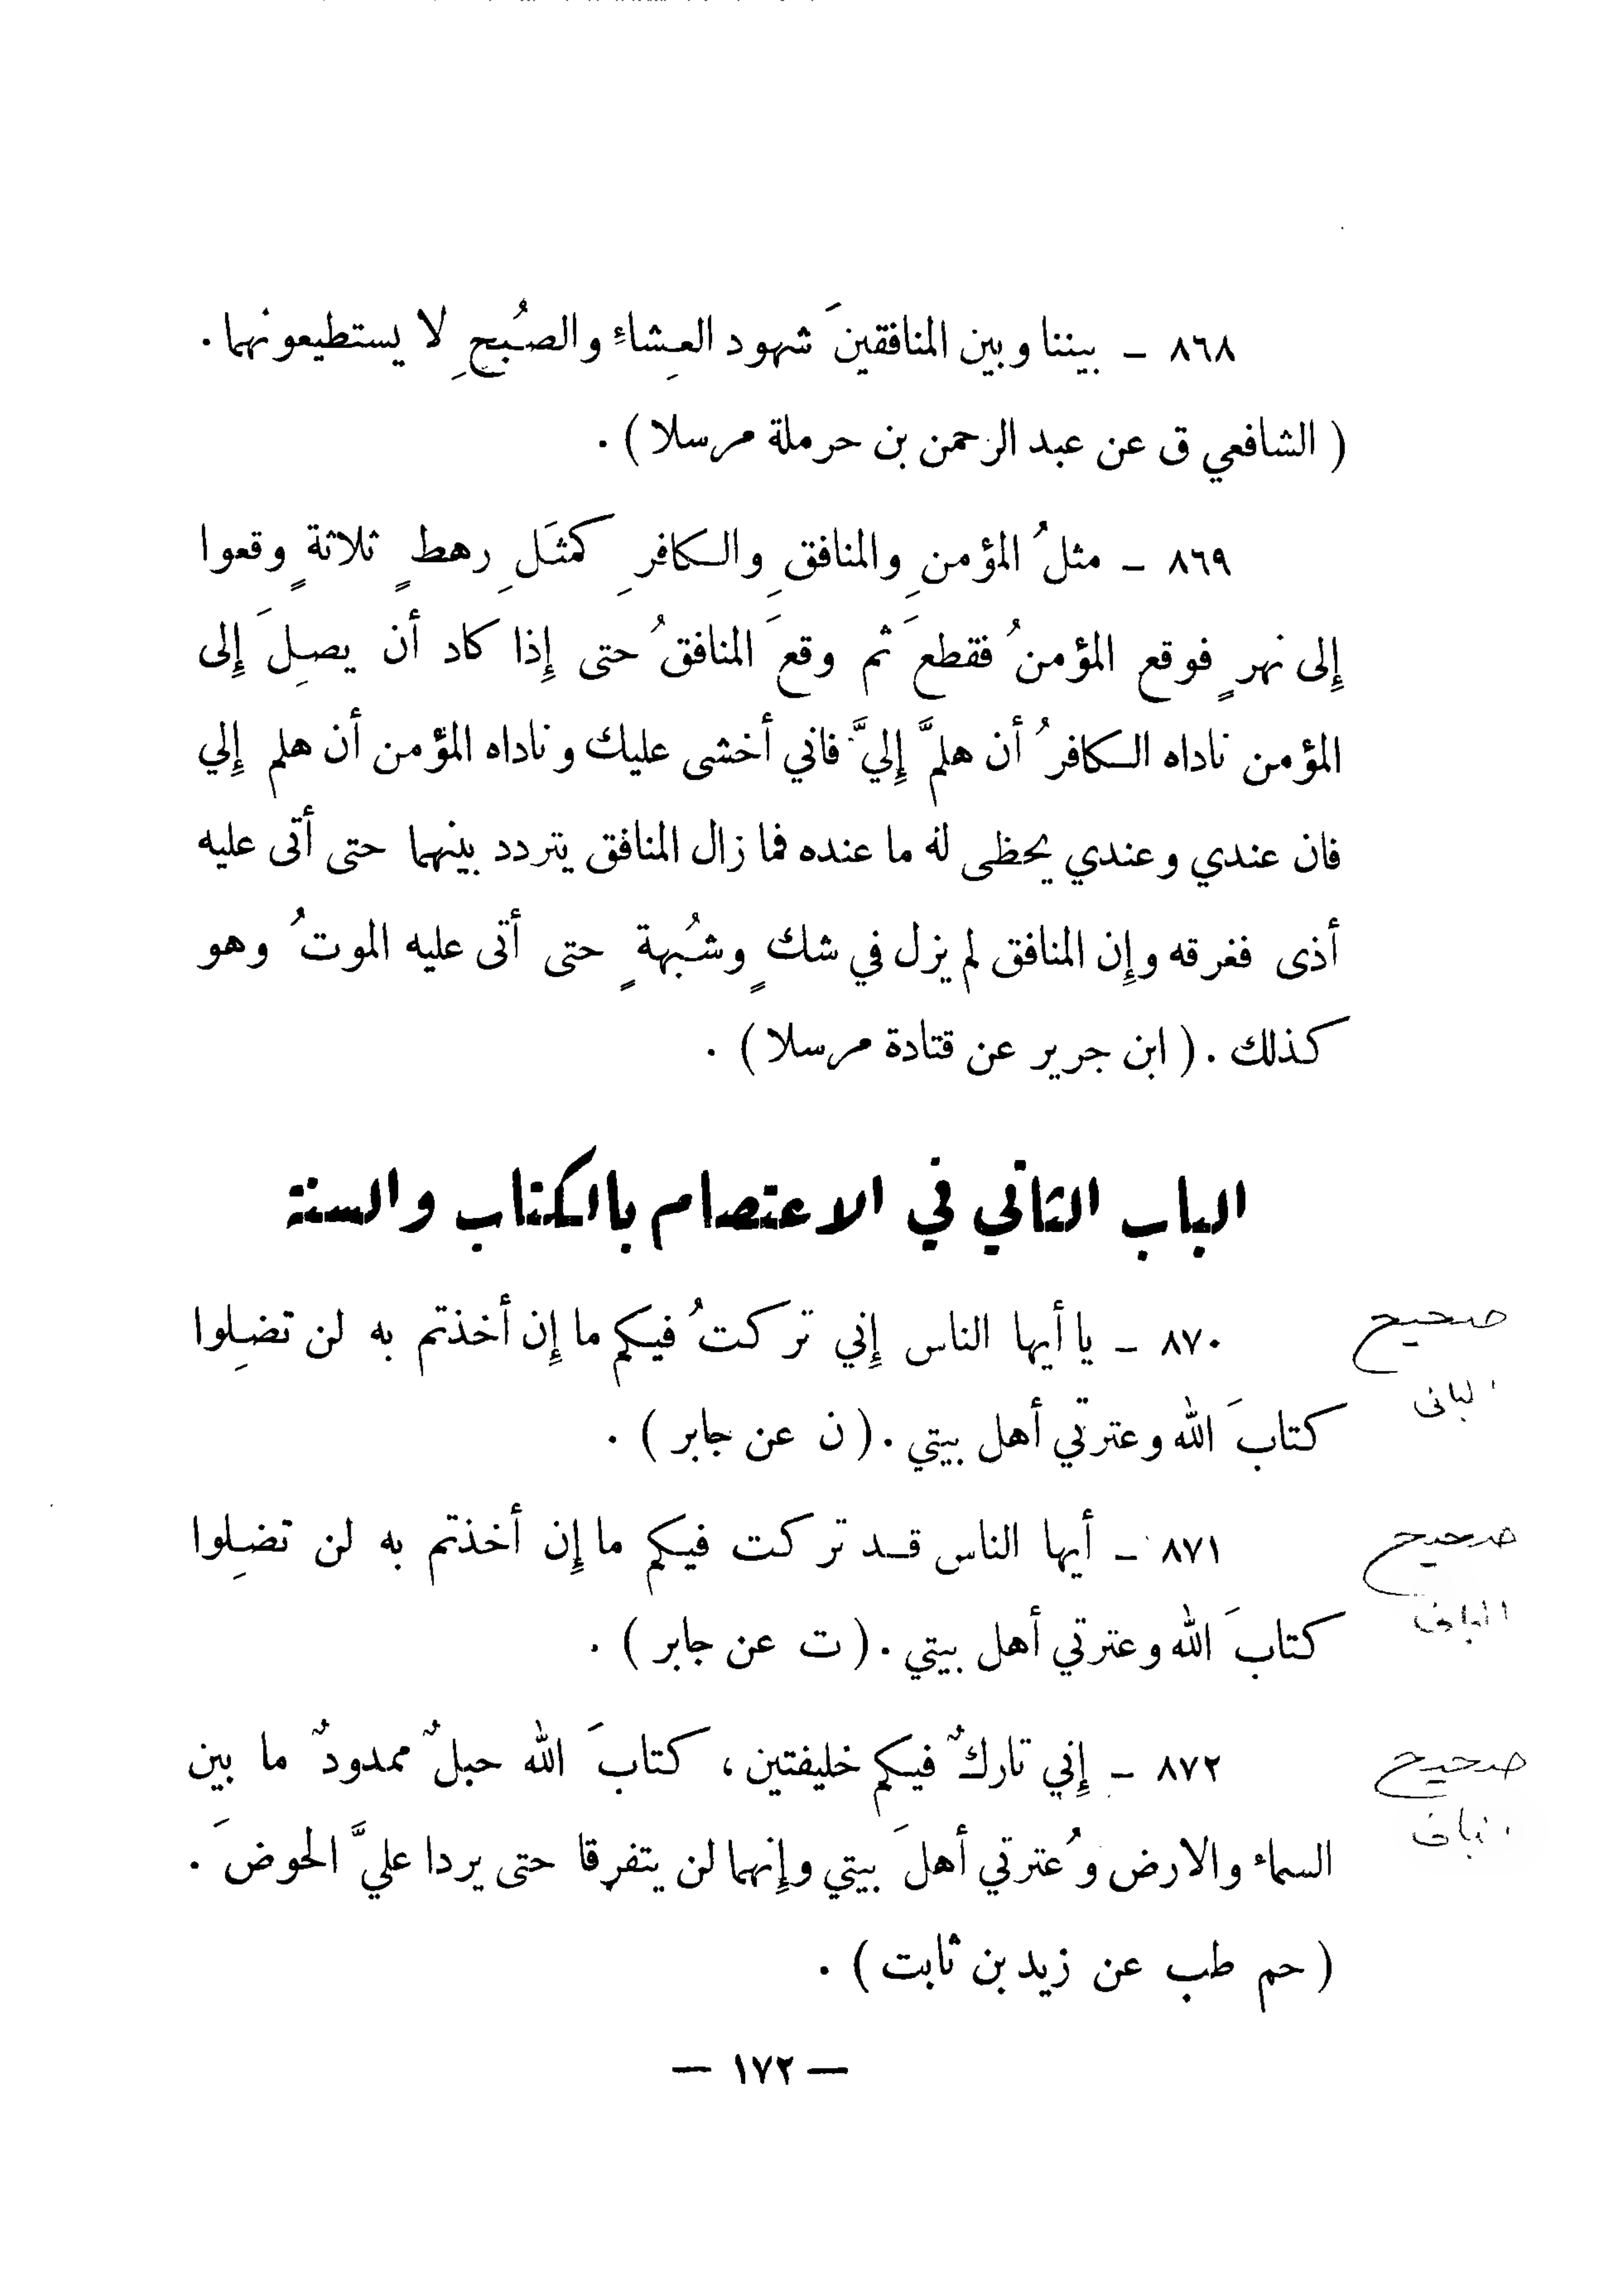 ٨٦٨ ـ بيننا وبين المنافقينَ شهود العِشاءِ والصُبحِ لا يستطيعونهما .
( الشافعي ق عن عبد الرحمن بن حرملة مرسلا ) .
٨٦٩ ـ مثلُ المؤمنِ والمنافقِ والكافرِ كمثَلِ رهطٍ ثلاثةٍ وقعوا
إِلى نهرٍ فوقع المؤمنُ فقطعَ ثم وقعَ المنافقُ حتى إِذا كاد أن يصِلَ إِلى
المؤمن ناداه الكافرُ أن هلمَّ إِليَّ فاني أخشى عليك وناداه المؤمن أن هلم إِلي
فان عندي وعندي يحظى له ما عنده فما زال المنافق يتردد بينهما حتى أتى عليه
أذى فغرقه وإِن المنافق لم يزل في شكٍ وشُبهةٍ حتى أتى عليه الموتُ وهو
كذلك . ( ابن جرير عن قتادة مرسلا ) .
الباب الثاني في الاعتصام بالكتاب والسنة
٨٧٠ ـ يا أيها الناس إِني تركتُ فيكم ما إِن أخذتم به لن تضلِوا
صحيح
البانى
كتابَ الله وعترتي أهل بيتي . ( ن عن جابر ) .
٨٧١ ـ أيها الناس قد تركت فيكم ما إِن أخذتم به لن تضلِوا
صحيح
البانى
كتابَ الله وعترتي أهل بيتي . ( ت عن جابر ) .
٨٧٢ ـ إِني تاركٌ فيكم خليفتين ، كتابَ الله حبلٌ ممدودٌ ما بين
صحيح
السماء والارض وُعترتي أهلَ بيتي وإِنهما لن يتفرقا حتى يردا عليَّ الحوضَ .
( حم طب عن زيد بن ثابت ) .
— ١٧٢ —